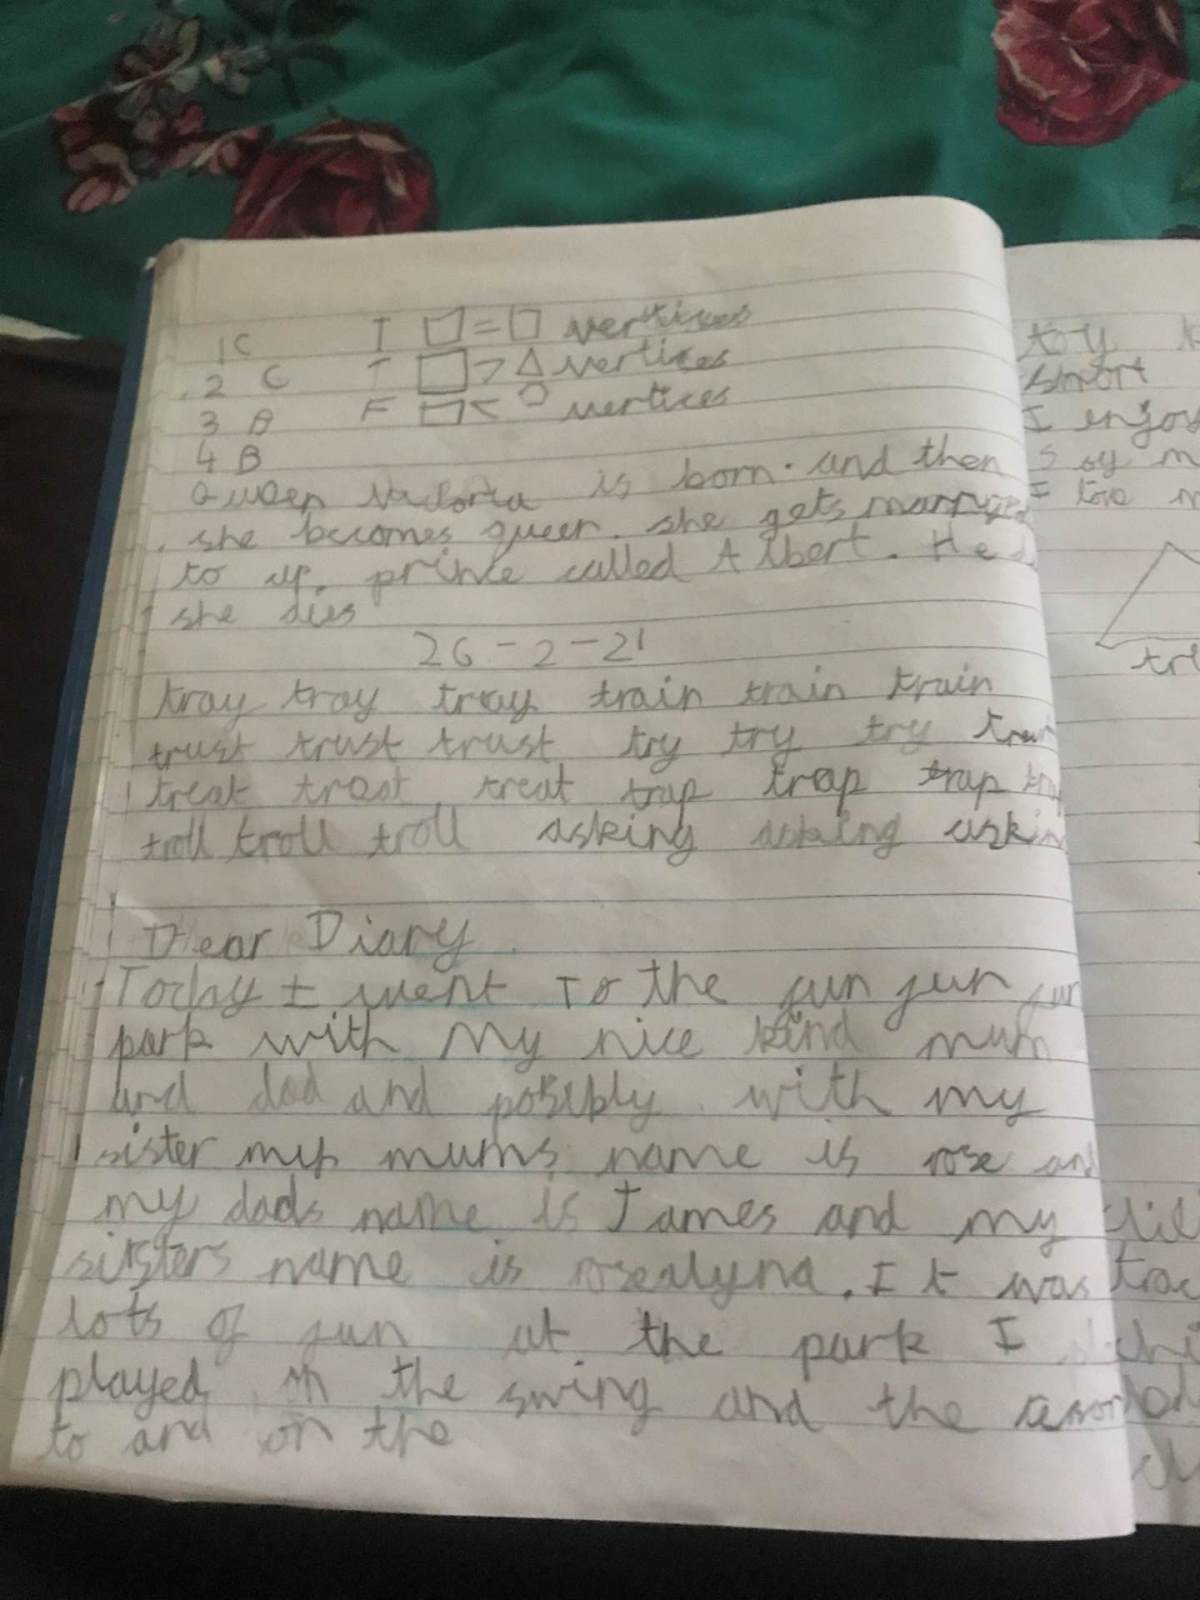 1C T □ = □ vertices
2 C T □ > △ vertices
3 B F □ < ⬠ vertices
4 B
Queen is born. and then
she becomes queen. she gets marryed
to prince called Albert. He
she dies
26-2-21
tray tray tray train train train
trust trust trust try try try
treat treat treat trap trap trap
troll troll troll asking asking askin
Dear Diary
Today I went to the fun fun fun
park with my nice kind mum
and dad and posibly with my
sister my mums name is rose and
my dads name is James and my
sisters name is rosealyna. It was
lots of fun at the park I
played on the swing and the
to and on the
smort
I enjoy
tri